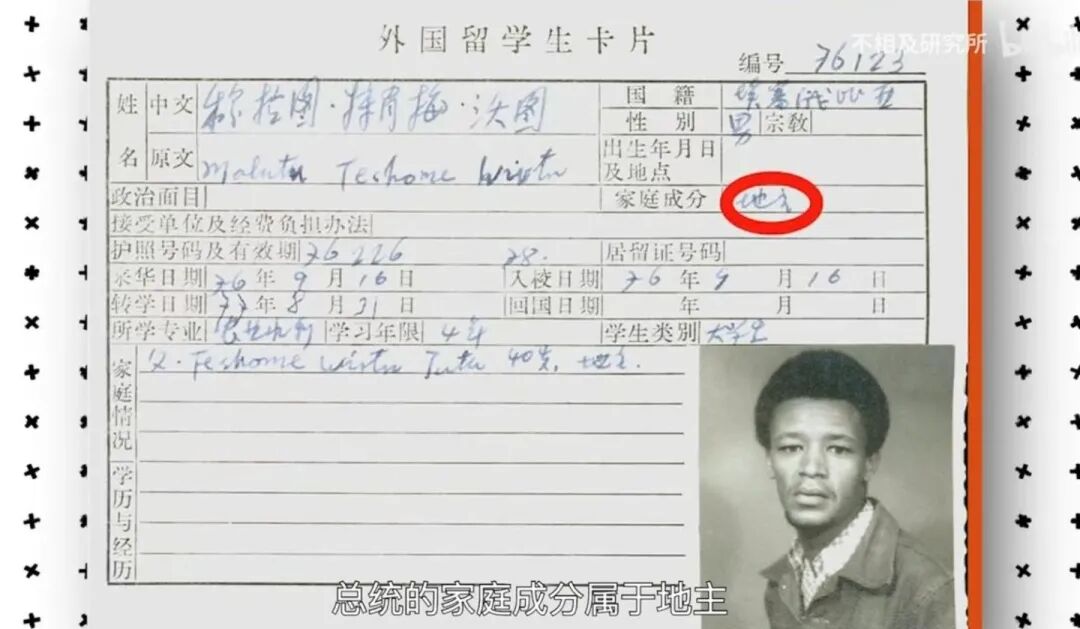 不相及研究所
外国留学生卡片
编号 76123
姓名 中文 穆拉图·特肖梅·沃图
国籍 埃塞俄比亚
性别 男 宗教
原文 Mulatu Teshome Wirtu
出生年月日及地点
政治面目 家庭成分 地主
接受单位及经费负担办法
护照号码及有效期 76226 78. 居留证号码
来华日期 76年9月16日 入校日期 76年9月16日
转学日期 77年8月31日 回国日期 年 月 日
所学专业 学习年限 4年 学生类别 大学生
家庭情况 父. Teshome Wirtu Tutu 40岁, 地主.
学历与经历
总统的家庭成分属于地主